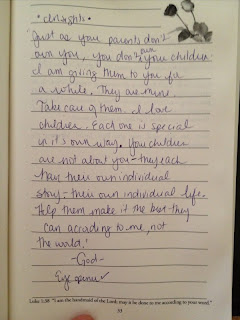 •Insights•
"Just as your parents don't
own you, you don't own your children.
I am giving them to you for
a while. They are mine.
Take care of them. I love
children. Each one is special
in its own way. Your children
are not about you - they each
have their own individual
story - their own individual life.
Help them make it the best they
can according to me, not
the world."
-God-
Eye opener ✓
Luke 1:38 "I am the handmaid of the Lord; may it be done to me according to your word."
33